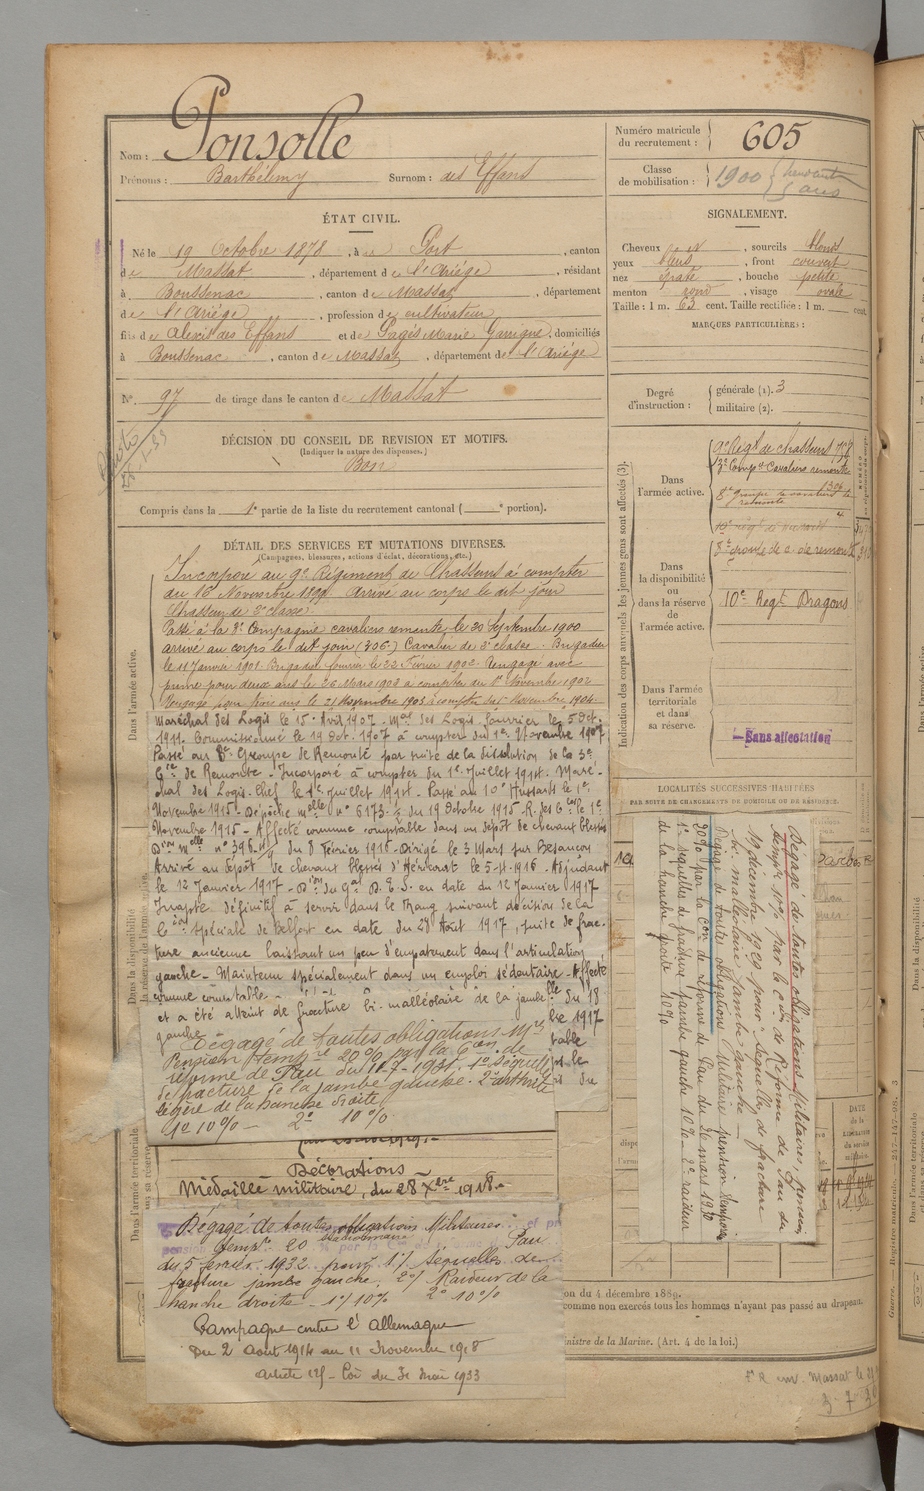 Nom : Ponsolle
Prénoms : Barthélemy Surnom : des Effans
Numéro matricule du recrutement : 605
Classe de mobilisation : 1900
ÉTAT CIVIL.
Né le 19 Octobre 1878, à Port, canton
de Massat, département de l'Ariége, résidant
à Boussenac, canton de Massat, département
de l'Ariége, profession de cultivateur
fils de Alexis des Effans et de Pagès Marie Garrigue, domiciliés
à Boussenac, canton de Massat, département de l'Ariége
N° 97 de tirage dans le canton de Massat
Photo
SIGNALEMENT.
Cheveux , sourcils blonds
yeux bleus, front couvert
nez , bouche petite
menton rond, visage ovale
Taille : 1 m. 63 cent. Taille rectifiée : 1 m. cent.
MARQUES PARTICULIÈRES :
Degré d'instruction : générale (1). 3
militaire (2).
DÉCISION DU CONSEIL DE REVISION ET MOTIFS.
(Indiquer la nature des dispenses.)
Bon
Compris dans la 1e partie de la liste du recrutement cantonal ( e portion).
Indication des corps auxquels les jeunes gens sont affectés (3).
Dans l'armée active.
9e Régt de chasseurs
3e Compie Cavaliers remonte
8e groupe de cavaliers de remonte
Dans la disponibilité ou dans la réserve de l'armée active.
10e Regt Dragons
Dans l'armée territoriale et dans sa réserve.
Sans affectation
DÉTAIL DES SERVICES ET MUTATIONS DIVERSES.
(Campagnes, blessures, actions d'éclat, décorations, etc.)
Dans l'armée active.
Incorporé au 9e Régiment de Chasseurs à compter
du 16 Novembre 1899. Arrivé au corps le dit jour
Chasseur de 2e classe.
Passé à la 3e Compagnie cavaliers remonte, le 20 Septembre 1900
arrivé au corps le dit jour (306) Cavalier de 2e classe. Brigadier
le 11 Janvier 1901. Brigadier fourrier le 22 Février 1902. Rengagé avec
prime pour deux ans le 26 Mars 1902 à compter du 1er Novembre 1902
Rengagé pour trois ans le 21 Novembre 1903 à compter du 1er Novembre 1904
Maréchal des Logis le 15 Avril 1907 - Mal des Logis fourrier le 5 Oct.
1911. Commissionné le 19 Oct. 1907 à compter du 1er Novembre 1907
Passé au 8e Groupe de Remonte par suite de la dissolution de la 3e
Cie de Remonte - Incorporé à compter du 1er Juillet 191 . Maré-
chal des Logis Chef le 1er Juillet 191 - Passé au 10e Hussards le 1er
Novembre 1915 - Dépêche melle n° 6173 du 19 Octobre 1915
Novembre 1915 - Affecté comme comptable dans un dépôt de chevaux blessés
Don melle n° 396 du 8 Février 1916 - Dirigé le 3 Mars sur Besançon
Arrivé au dépôt de chevaux blessés d'Héricourt le 1916 - Adjudant
le 12 Janvier 1917 - Don du Gal D. E. S. en date du 12 Janvier 1917
Inapte définitif à servir dans le Rang suivant décision de la
Con spéciale de Belfort en date du 28 Août 1917, suite de frac-
ture ancienne laissant un peu d'empâtement dans l'articulation
gauche - Maintenu spécialement dans un emploi sédentaire - Affecté
comme comptable -
et a été atteint de fracture bi-malléolaire de la jambe
gauche
Dégagé de toutes obligations Mres
Pension tempre 20% par la Con de
réforme de Pau du 1931. 1° Séquelles
de fracture de la jambe gauche. 2° arthrite
légère de la hanche droite
1° 10% - 2° 10%.
Décorations
Médaille militaire, du 28 Xbre 1918.
Dégagé de toutes obligations Militaires
temp. 20 % Pau
du 5 février 1932 pour 1°/ séquelles de
fracture jambe gauche, 2°/ Raideur de la
hanche droite - 1°/ 10% 2° 10%
Campagne contre l'Allemagne
Du 2 Août 1914 au 11 Novembre 1918
Article 125 - Loi du 31 Mai 1933
LOCALITÉS SUCCESSIVES HABITÉES
PAR SUITE DE CHANGEMENTS DE DOMICILE OU DE RÉSIDENCE.
Dégagé de toutes obligations Militaires, pension
temp. 10% par la Con de Réforme de Pau du
19 décembre 1929 pour séquelles de fracture
bi-malléolaire jambe gauche -
Dégagé de toutes obligations Militaires pension temporaire
20% par la Con de réforme de Pau du 26 mars 1930
1° séquelles de fracture jambe gauche 10% - 2° raideur
de la hanche droite 10%
DATE
on du 4 décembre 1889.
comme non exercés tous les hommes n'ayant pas passé au drapeau.
inistre de la Marine. (Art. 4 de la loi.)